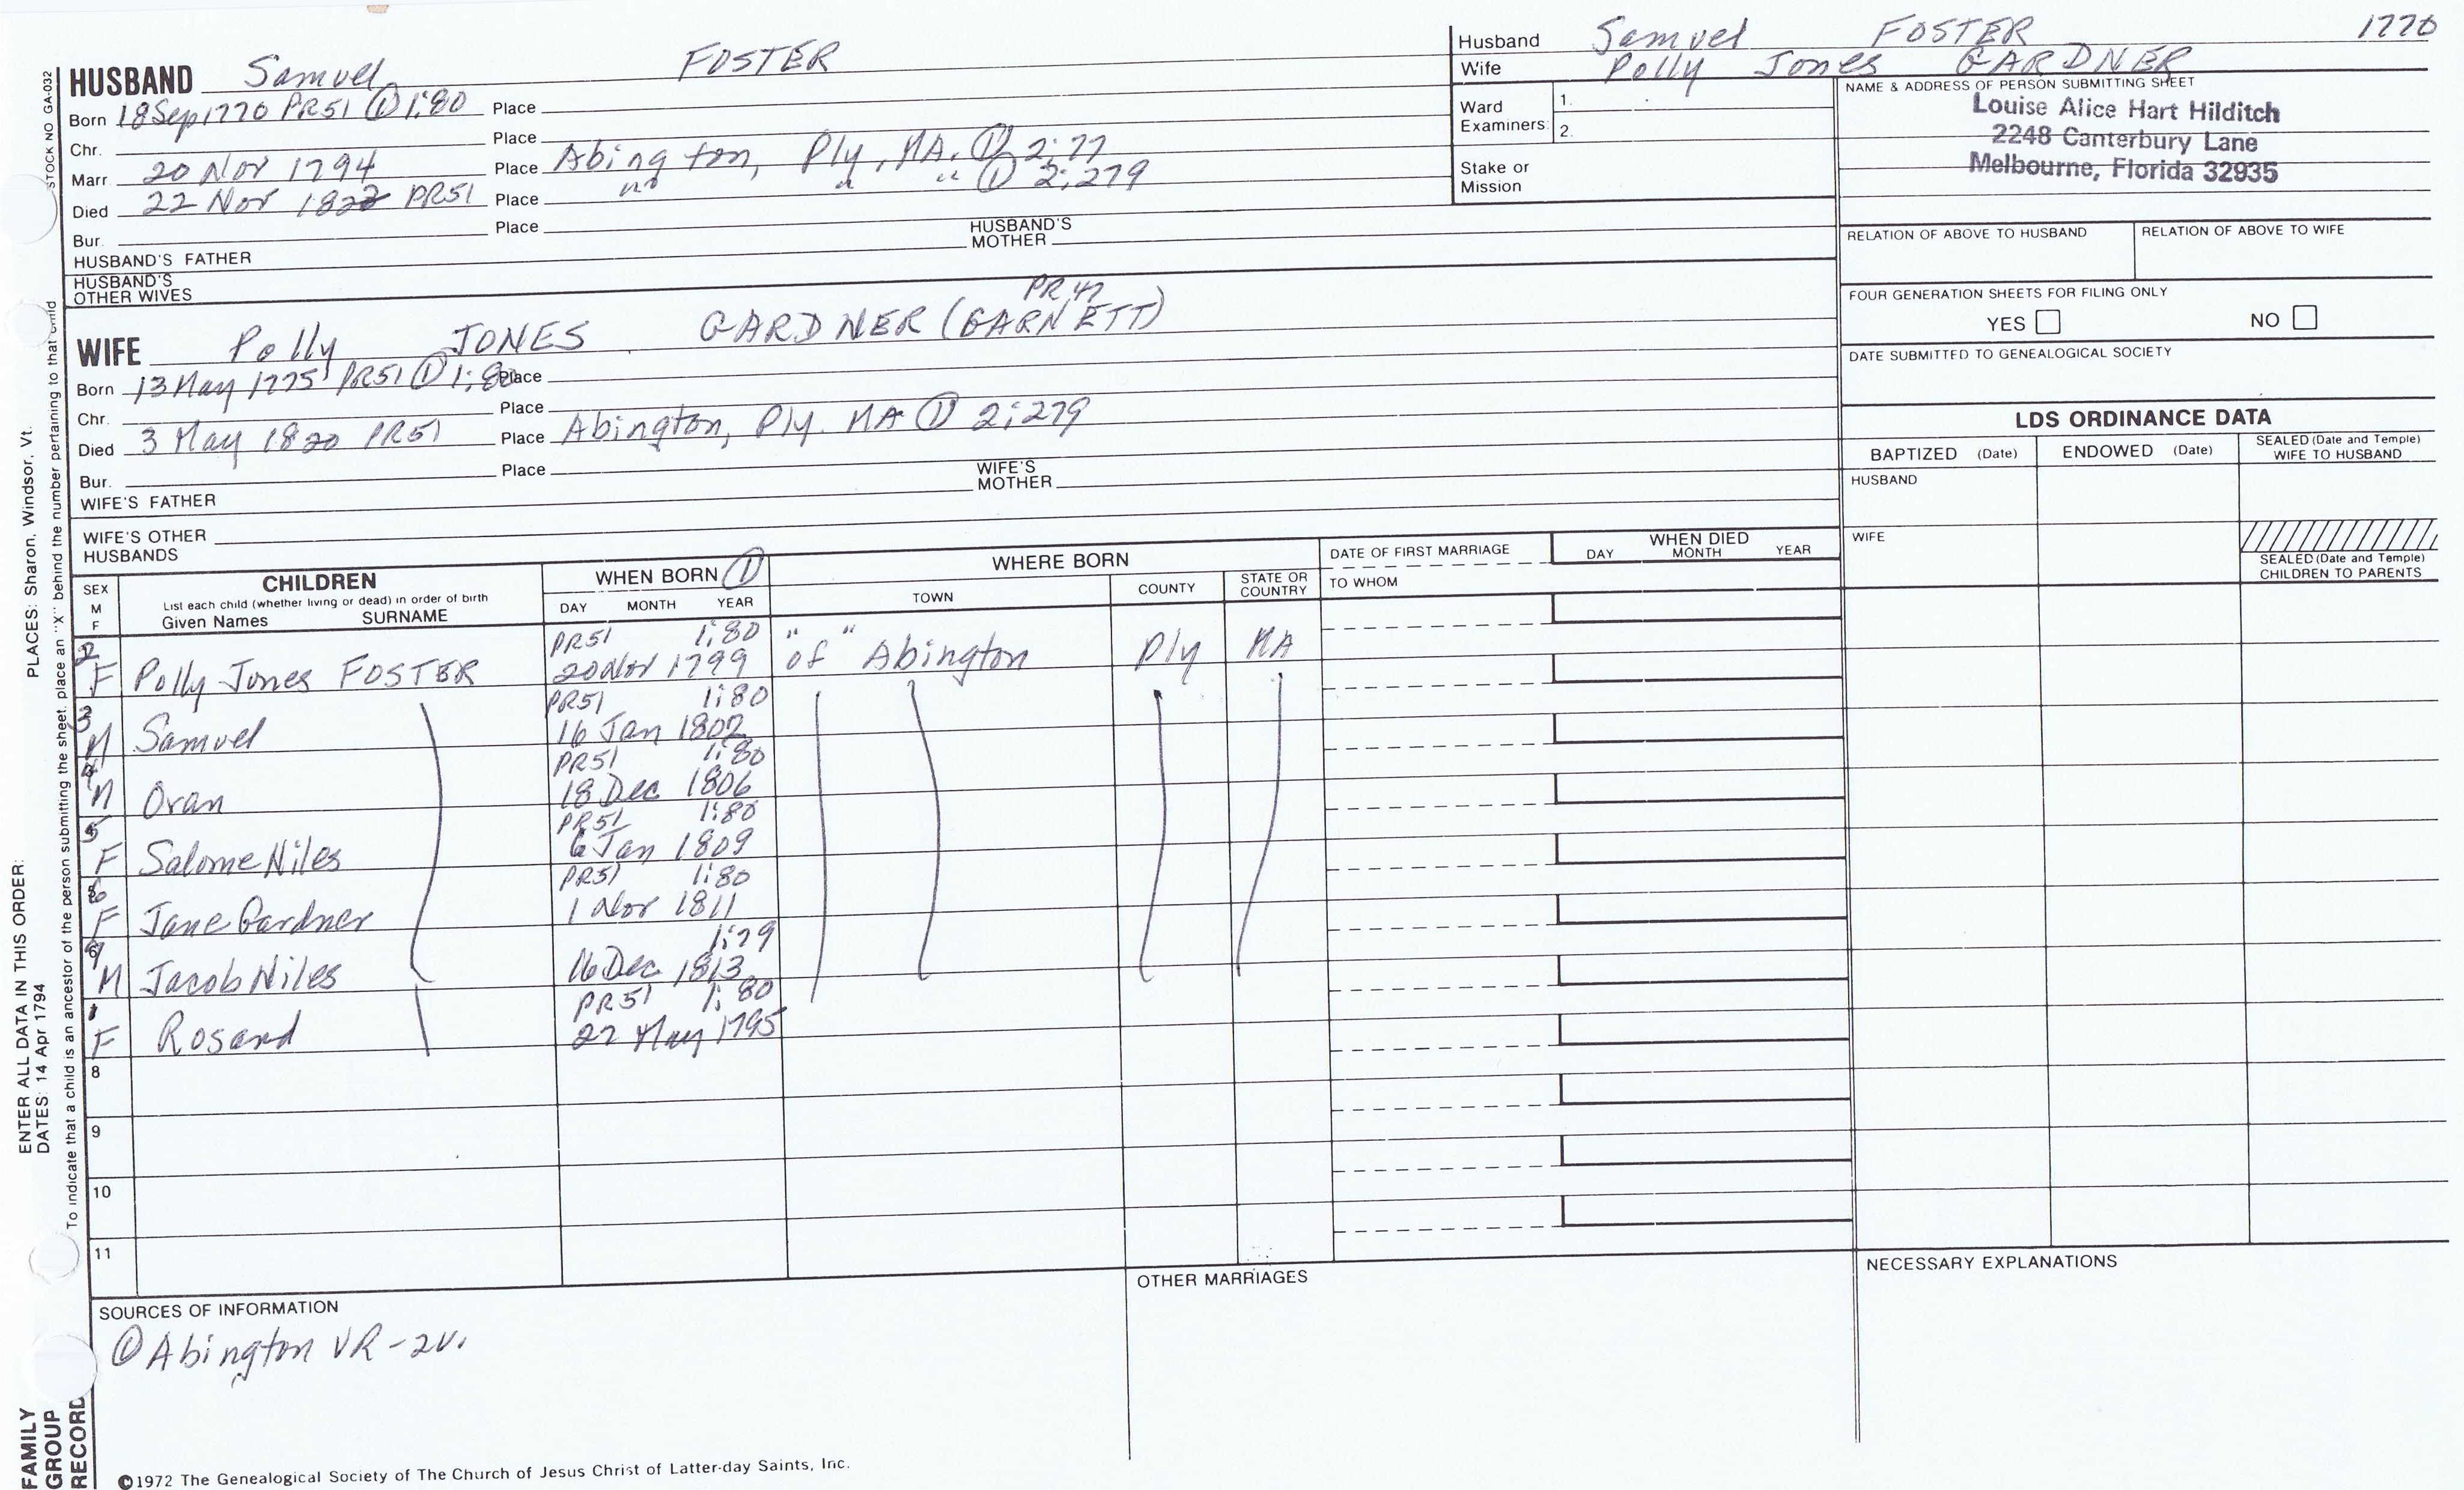 Husband Samuel FOSTER 1770
Wife Polly Jones GARDNER
HUSBAND Samuel FOSTER
Born 18 Sep 1770 PR51 ① 1:80 Place
Chr. Place
Marr. 20 Nov 1794 Place Abington, Ply, MA. ① 2:77
Died 22 Nov 1822 PR51 Place " " " ① 2:279
Bur. Place
HUSBAND'S FATHER
HUSBAND'S MOTHER
HUSBAND'S OTHER WIVES
Ward Examiners:
1.
2.
Stake or Mission
NAME & ADDRESS OF PERSON SUBMITTING SHEET
Louise Alice Hart Hilditch
2248 Canterbury Lane
Melbourne, Florida 32935
RELATION OF ABOVE TO HUSBAND
RELATION OF ABOVE TO WIFE
FOUR GENERATION SHEETS FOR FILING ONLY
YES NO
DATE SUBMITTED TO GENEALOGICAL SOCIETY
PR47
WIFE Polly JONES GARDNER (GARNETT)
Born 13 May 1775 PR51 ① 1:80 Place
Chr. Place
Died 3 May 1820 PR51 Place Abington, Ply. MA ① 2:279
Bur. Place
WIFE'S FATHER
WIFE'S MOTHER
WIFE'S OTHER HUSBANDS
LDS ORDINANCE DATA
BAPTIZED (Date)
ENDOWED (Date)
SEALED (Date and Temple) WIFE TO HUSBAND
HUSBAND
WIFE
SEALED (Date and Temple) CHILDREN TO PARENTS
SEX M F
CHILDREN
List each child (whether living or dead) in order of birth
Given Names SURNAME
WHEN BORN ①
DAY MONTH YEAR
WHERE BORN
TOWN COUNTY STATE OR COUNTRY
DATE OF FIRST MARRIAGE
TO WHOM
WHEN DIED
DAY MONTH YEAR
PR51 1:80
2 F Polly Jones FOSTER 20 Nov 1799 "of" Abington Ply MA
PR51 1:80
3 M Samuel 16 Jan 1802
PR51 1:80
4 M Oran 18 Dec 1806
PR51 1:80
5 F Salome Niles 6 Jan 1809
PR51 1:80
6 F Jane Gardner 1 Nov 1811
1:79
7 M Jacob Niles 16 Dec 1813
PR51 1:80
1 F Rosand 27 May 1795
8
9
10
11
SOURCES OF INFORMATION
① Abington VR-2v.
OTHER MARRIAGES
NECESSARY EXPLANATIONS
©1972 The Genealogical Society of The Church of Jesus Christ of Latter-day Saints, Inc.
STOCK NO GA-032
To indicate that a child is an ancestor of the person submitting the sheet, place an "X" behind the number pertaining to that child
ENTER ALL DATA IN THIS ORDER:
PLACES: Sharon, Windsor, Vt.
DATES: 14 Apr 1794
FAMILY
GROUP
RECORD